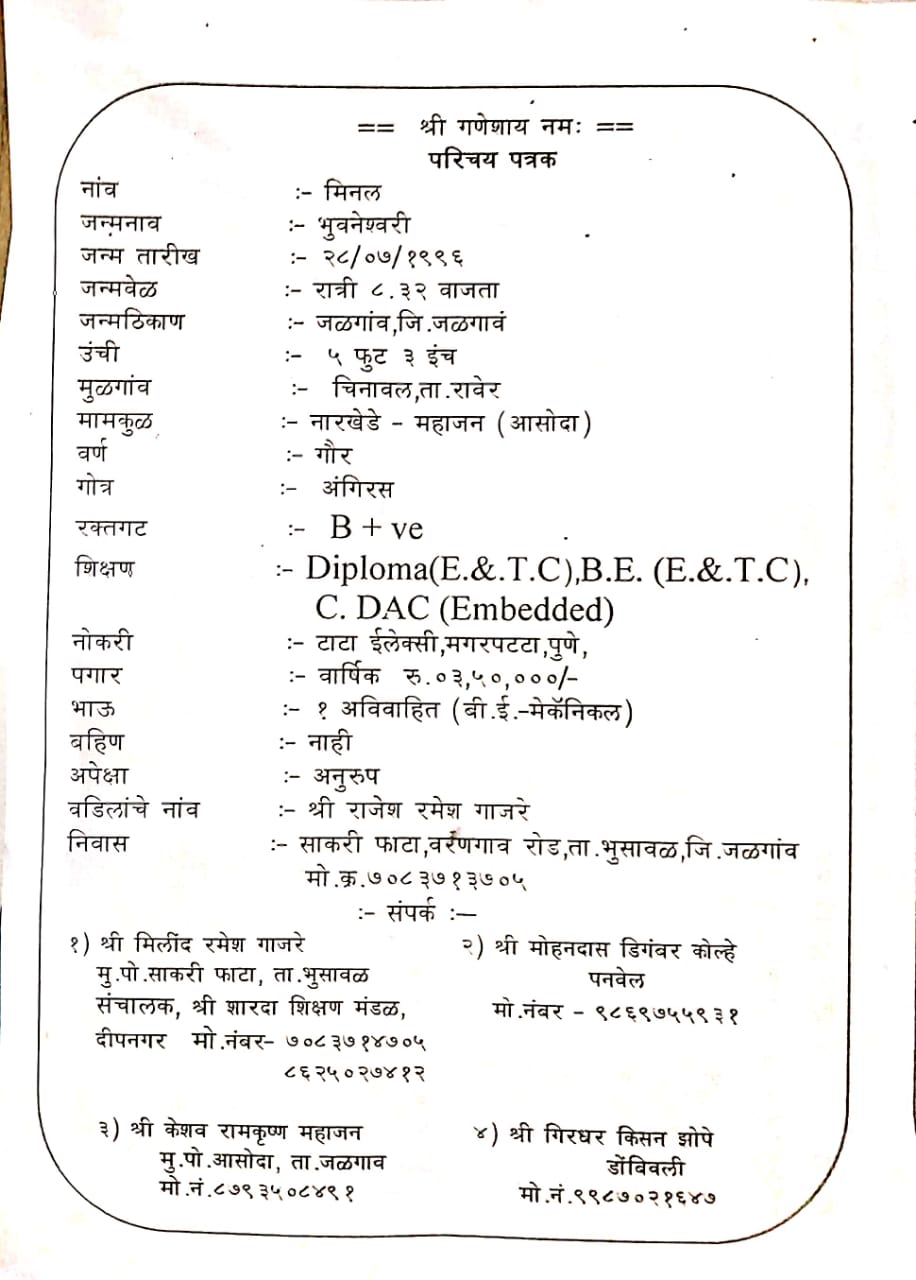 == श्री गणेशाय नमः ==
परिचय पत्रक
नांव :- मिनल
जन्मनाव :- भुवनेश्वरी
जन्म तारीख :- २८/०७/१९९६
जन्मवेळ :- रात्री ८.३२ वाजता
जन्मठिकाण :- जळगांव,जि.जळगावं
उंची :- ५ फुट ३ इंच
मुळगांव :- चिनावल,ता.रावेर
मामकुळ :- नारखेडे - महाजन (आसोदा)
वर्ण :- गौर
गोत्र :- अंगिरस
रक्तगट :- B + ve
शिक्षण :- Diploma(E.&.T.C),B.E. (E.&.T.C),
C. DAC (Embedded)
नोकरी :- टाटा ईलेक्सी,मगरपटटा,पुणे,
पगार :- वार्षिक रु.०३,५०,०००/-
भाऊ :- १ अविवाहित (बी.ई.-मेकॅनिकल)
बहिण :- नाही
अपेक्षा :- अनुरुप
वडिलांचे नांव :- श्री राजेश रमेश गाजरे
निवास :- साकरी फाटा,वरणगाव रोड,ता.भुसावळ,जि.जळगांव
मो.क्र.७०८३७१३७०५
:- संपर्क :—
१) श्री मिलींद रमेश गाजरे
मु.पो.साकरी फाटा, ता.भुसावळ
संचालक, श्री शारदा शिक्षण मंडळ,
दीपनगर मो.नंबर- ७०८३७१४७०५
८६२५०२७४१२
२) श्री मोहनदास डिगंबर कोल्हे
पनवेल
मो.नंबर - ९८६९७५५९३१
३) श्री केशव रामकृष्ण महाजन
मु.पो.आसोदा, ता.जळगाव
मो.नं.८७९३५०८४९१
४) श्री गिरधर किसन झोपे
डोंबिवली
मो.नं.९९८७०२१६४७